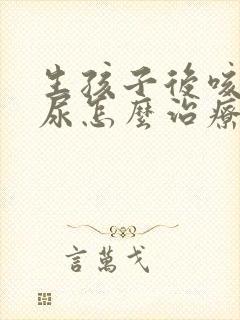 生孩子後咳
尿怎麼治療
言萬戈